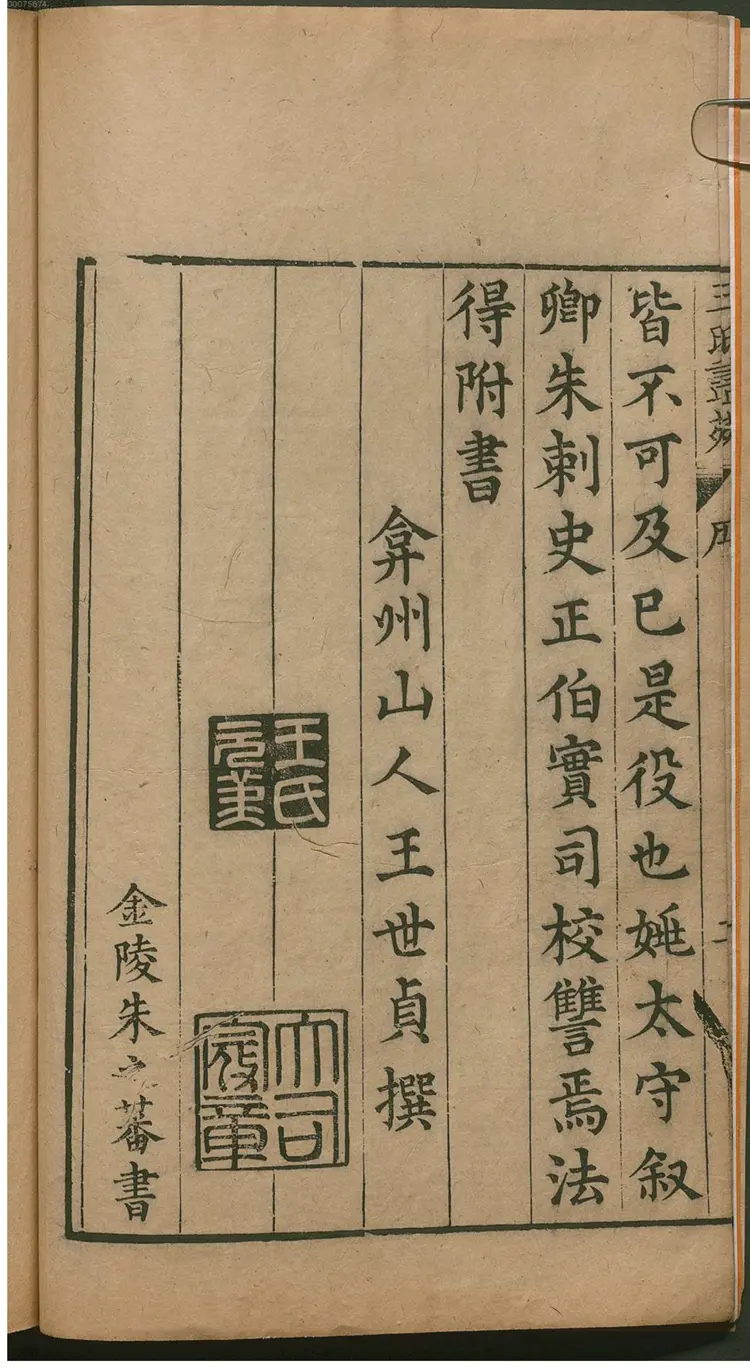 00075674
王氏畫苑
序
二
皆不可及巳是役也姚太守叙
卿朱刺史正伯實司校讐焉法
得附書
弇州山人王世貞撰
王氏元美
大司寇章
金陵朱之蕃書